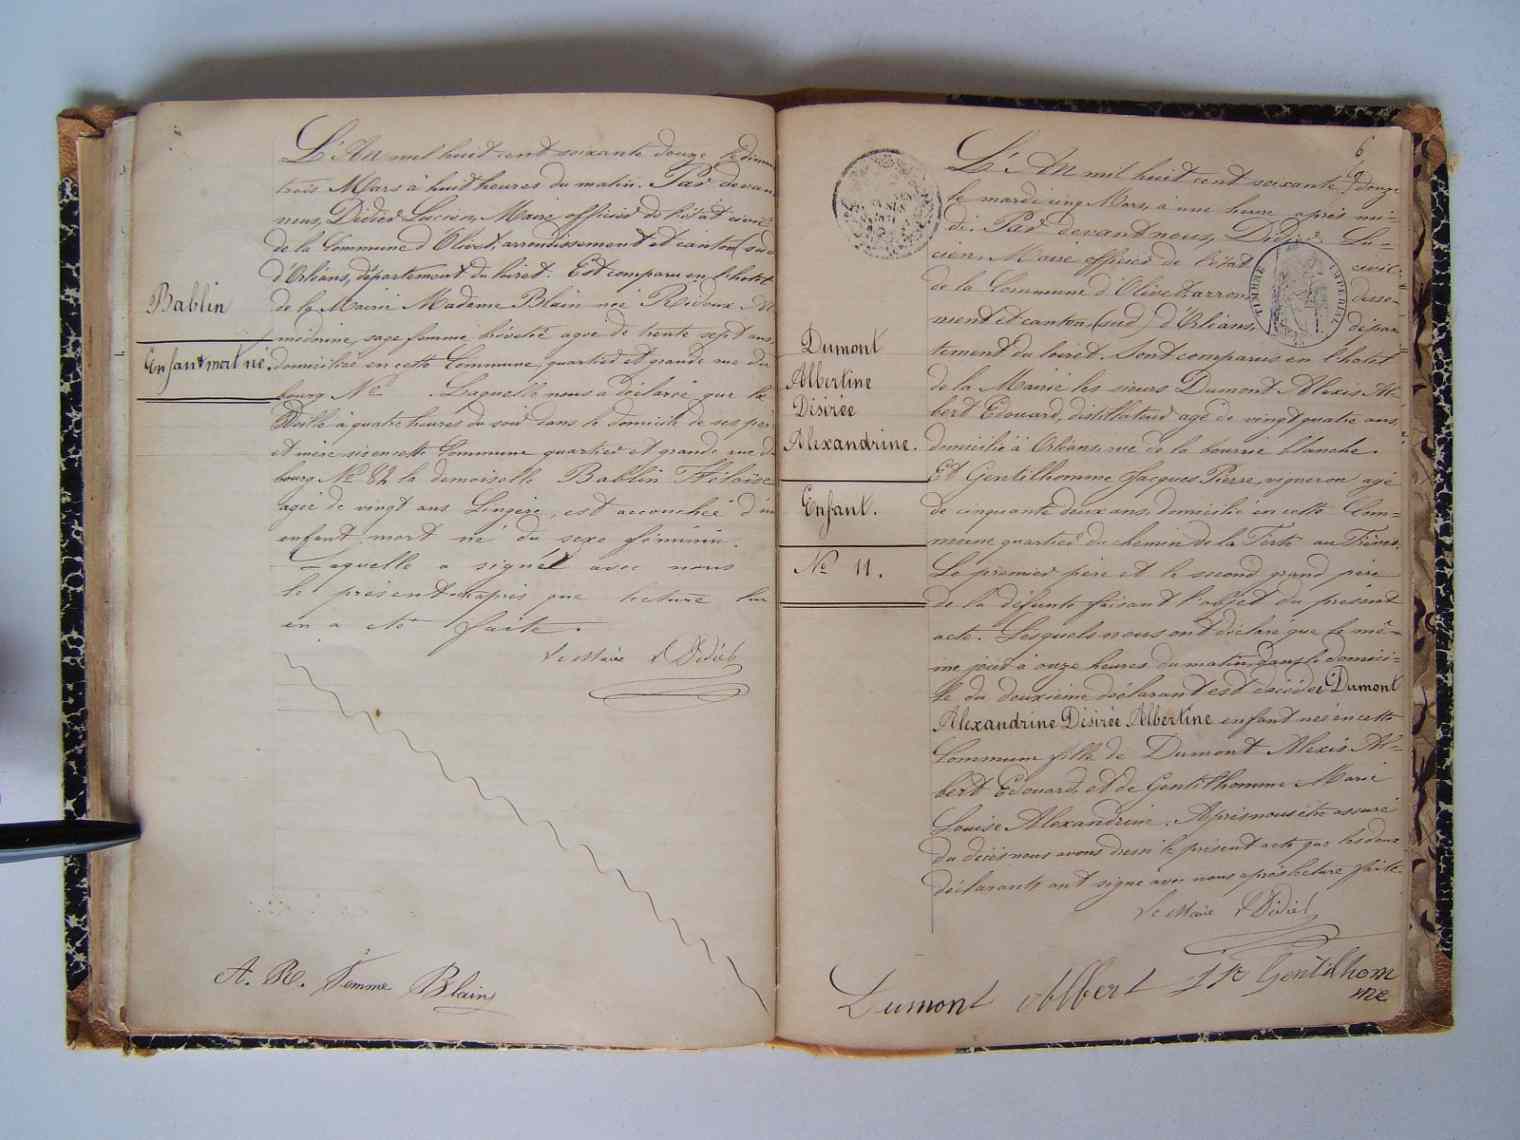 Bablin
Enfant mort né.
L'An mil huit cent soixante douze, le diman
trois Mars à huit heures du matin. Par devan
nous, Didier Lucien, Maire officier de l'état civil
de la Commune d'Olivet, arrondissement et canton (sud
d'Orléans, département du loiret. Est comparu en l'hotel
de la Mairie Madame Blain née Ridoux
médnine, sage femme brévetée agée de trente sept ans
domiciliée en cette Commune, quartier et grande rue du
bourg No Laquelle nous a déclaré que la
Veille à quatre heures du soir dans le domicile de ses pèr
et mère sis en cette Commune quartier et grande rue du
bourg No 82 la demoiselle Bablin Héloïse
agée de vingt ans Lingère, est accouchée d'un
enfant mort né du sexe féminin.
Laquelle a signé avec nous
le présent après que lecture lui
en a été faite.
Le Maire L Didier
A. R. Femme Blain
6
Dumont
Albertine
Désirée
Alexandrine.
Enfant.
No 11.
L'An mil huit cent soixante douze
le mardi cinq Mars, à une heure après mi=
di. Par devant nous, Didier Lu=
cien Maire officier de l'état civil
de la Commune d'Olivet, arron disse=
ment et canton (sud) d'Orléans, dépar
tement du loiret. Sont comparus en l'hotel
de la Mairie les sieurs Dumont Alexis Al=
bert Edouard, distillateur agé de vingt quatre ans,
domicilié à Orléans, rue de la bourrie blanche.
Et Gentilhomme Jacques Pierre, vigneron agé
de cinquante deux ans, domicilié en cette Com=
mune quartier du chemin de la Ferté au Trèves.
Le premier père et le second grand père
de la défunte faisant l'objet du présent
acte. Lesquels nous ont déclaré que le mê=
me jour à onze heures du matin, dans le domici=
le du deuxième déclarant est décédée Dumont
Alexandrine Désirée Albertine enfant née en cette
Commune fille de Dumont Alexis Al=
bert Edouard, et de Gentilhomme Marie
Louise Alexandrine. Après nous être assuré
du décès nous avons dressé le présent acte que les deux
déclarants ont signé avec nous après lecture faite.
Le Maire L Didier
TIMBRE IMPERIAL
Dumont Albert J P Gentilhom
me